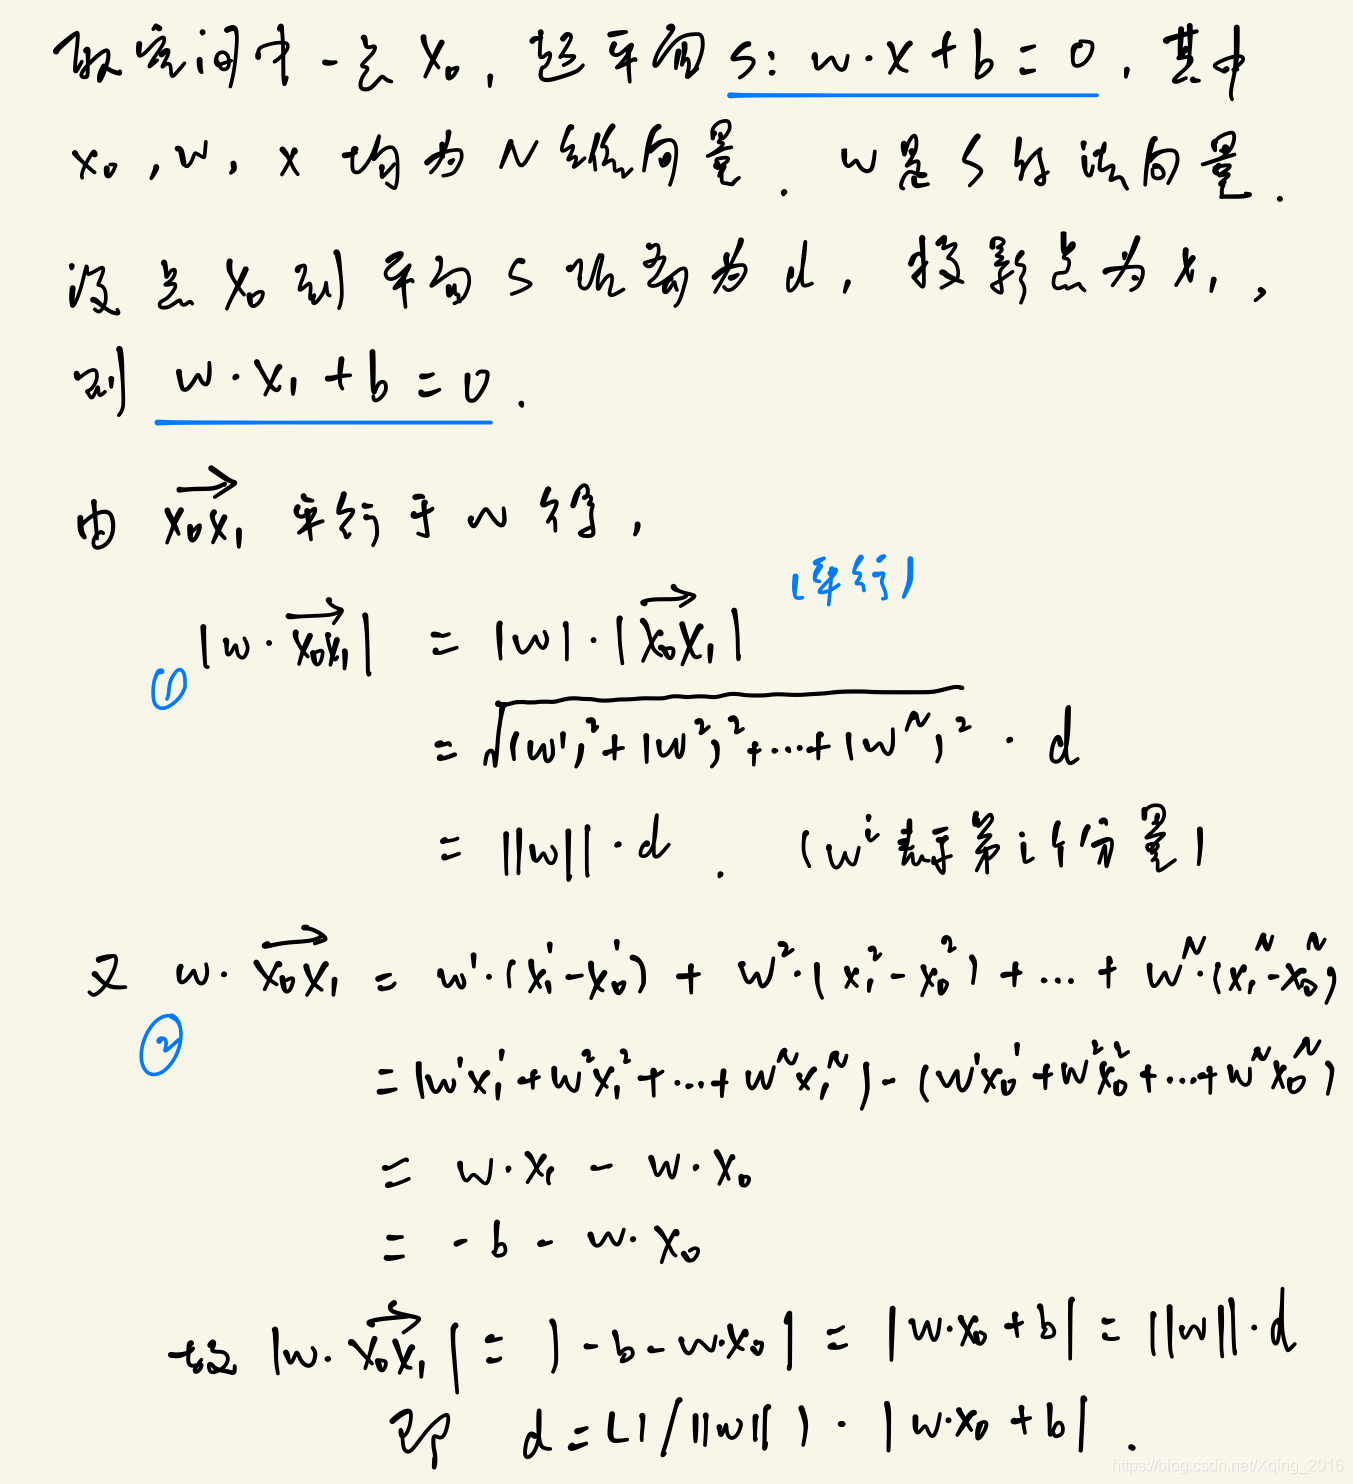 取空间中一点 x₀, 超平面 S: w·x+b=0, 其中
x₀, w, x 均为 N 维向量. w是 S 的法向量.
设点 x₀ 到平面 S 距离为 d, 投影点为 x₁,
则 w·x₁+b=0.
由 $\overrightarrow{x_0x_1}$ 平行于 w 得,
(平行)
① |w·$\overrightarrow{x_0x_1}$| = |w|·|$\overrightarrow{x_0x_1}$|
= $\sqrt{(w^1)^2+(w^2)^2+...+(w^N)^2}$ · d
= ||w||·d. (wⁱ 表示第 i 个分量)
又 w·$\overrightarrow{x_0x_1}$ = $w^1·(x_1^1-x_0^1)+w^2·(x_1^2-x_0^2)+...+w^N·(x_1^N-x_0^N)$
② = $(w^1x_1^1+w^2x_1^2+...+w^Nx_1^N)-(w^1x_0^1+w^2x_0^2+...+w^Nx_0^N)$
= w·x₁ - w·x₀
= -b - w·x₀
故 |w·$\overrightarrow{x_0x_1}$| = |-b-w·x₀| = |w·x₀+b| = ||w||·d
即 d=(1/||w||)·|w·x₀+b|.
https://blog.csdn.net/Xqing_2016